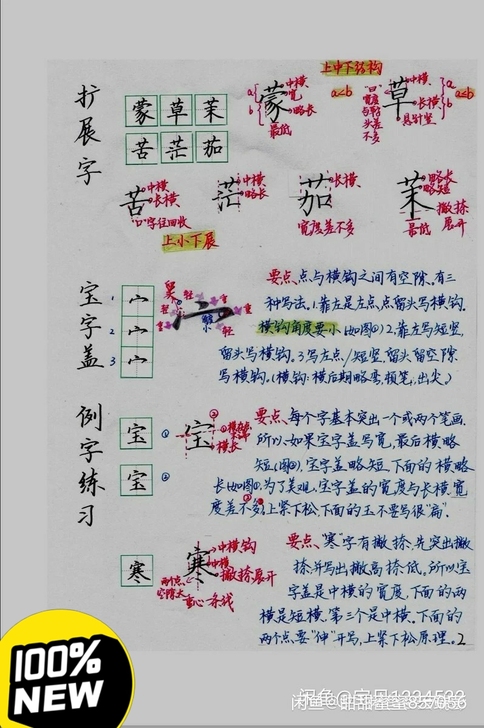 扩展字
蒙 草 茉
苦 茫 茄
上中下结构
蒙
a
b
a<b
中横
宽
略长
最低
草
"口"宽度与草头差不多
中横
长横
悬针竖
a
b
a<b
苦
中横
长横
"口"字住回收
茫
中横
略长
茄
长横
宽度差不多
茉
略长
略短
撇捺展开
最低
上小下展
宝字盖
1 宀
2 宀
3 宀
要点、点与横钩之间有空隙。有三
种写法。1.靠左是左点,点留头写横钩。
横钩角度要小(如图①)2.靠左写短竖,
留头写横钩。3写左点/短竖,留头留空隙
写横钩。(横钩:横后期略弯,顿笔,出尖。)
例字练习
宝 ①
宝 ②
宝
横长
要点、每个字基本突出一个或两个笔画.
所以、如果宝字盖写宽,最后横略
短(图②),宝字盖略短,下面的横略
长(如图①,为了美观,宝字盖的宽度与长横宽
度差不多,上紧下松,下面的玉不要写很"扁".
寒
寒
中横钩
中横
撇捺展开
两点空隙大
重心一条线
要点、"寒"字有撇捺,先突出撇
捺并写出撇高捺低。所以宝
字盖是中横的宽度,下面的两
横是短横,第三个是中横。下面的
两个点要"伸"开写,上紧下松原理。2
100%
NEW